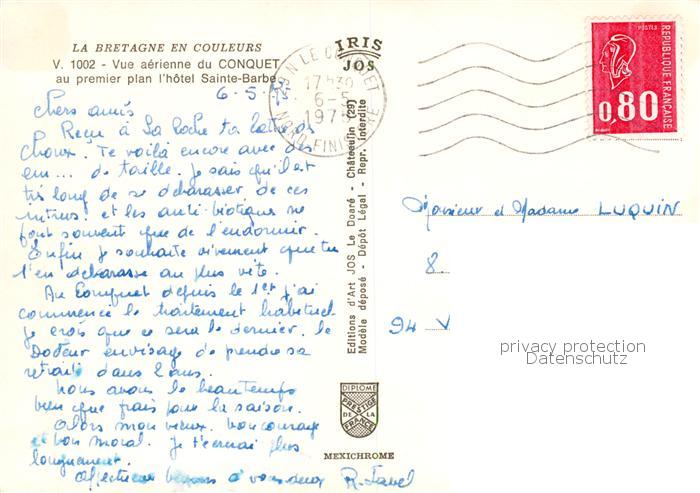 LA BRETAGNE EN COULEURS
V. 1002 - Vue aérienne du CONQUET
au premier plan l'hôtel Sainte-Barbe
6-5-75
Chers amis
Reçu à La Roche ta lettre de
choux. Te voilà encore avec des
em... de taille. Je sais qu'il est
très long de se débarasser de ces
virus et les anti-biotiques ne
font souvent que de l'endormir.
Enfin je souhaite vivement que tu
t'en débarasse au plus vite.
Au Conquet depuis le 1er j'ai
commencé le traitement habituel
je crois que ce sera le dernier. le
Docteur envisage de prendre sa
retraite dans 2 ans.
Nous avons le beau temps
bien que frais pour la saison.
Alors mon vieux. bon courage
et bon moral. Je t'écrirai plus
longuement.
Affectueux baisers à vous deux
IRIS
JOS
LE CONQUET
17H30
6-5
1975
NORD-FINISTERE
Editions d'Art JOS Le Doaré - Châteaulin (29)
Modèle déposé - Dépôt Légal - Repr. interdite
DIPLOME
PRESTIGE
DE LA
FRANCE
MEXICHROME
POSTES
REPUBLIQUE FRANÇAISE
0,80
Monsieur et Madame LUQUIN
8.
94 - V
privacy protection
Datenschutz